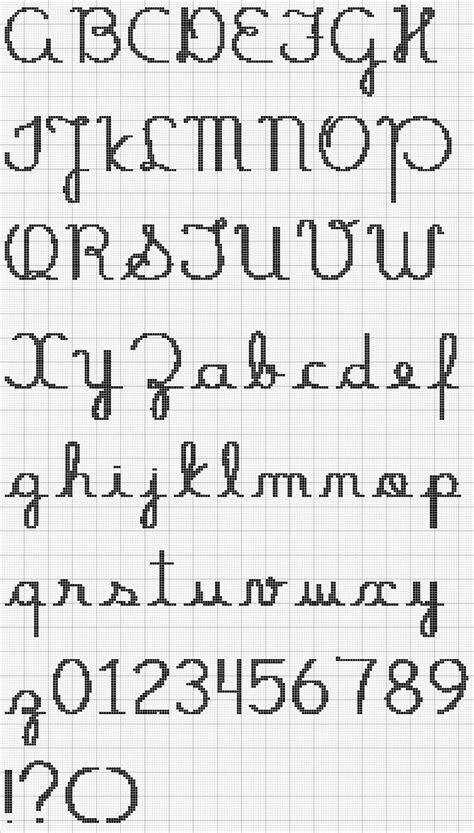 A B C D E F G H
I J K L M N O P
Q R S T U V W
X Y Z a b c d e f
g h i j k l m n o p
q r s t u v w x y
z 0 1 2 3 4 5 6 7 8 9
! ? ( )